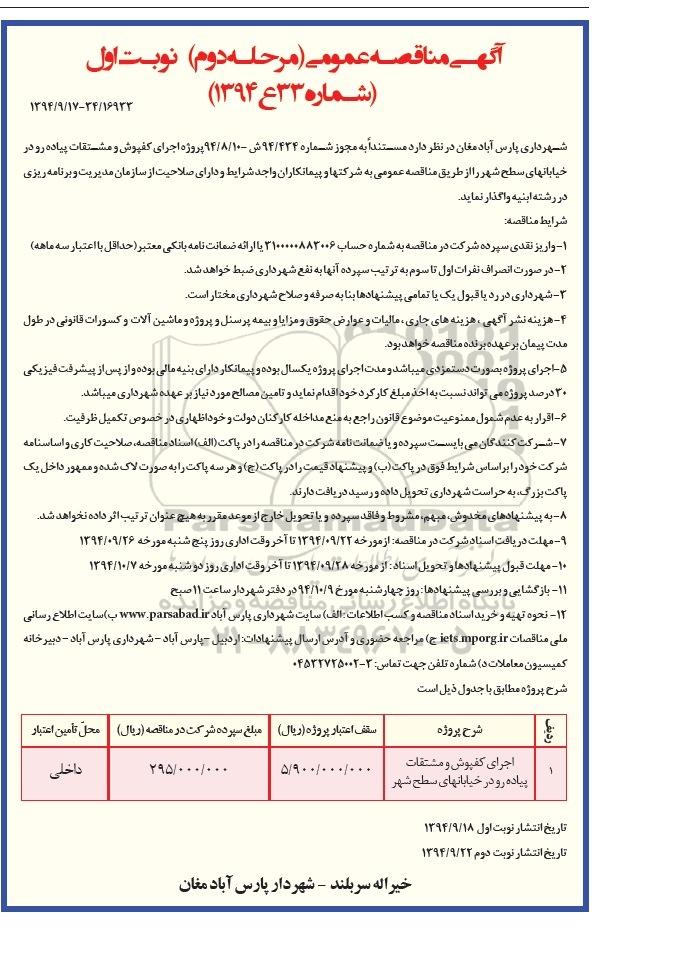 آگهی مناقصه عمومی (مرحله دوم) نوبت اول
(شماره ۳۳ع۱۳۹۴)
۱۳۹۴/۹/۱۷-۳۴/۱۶۹۳۳
شهرداری پارس آباد مغان در نظر دارد مستنداً به مجوز شماره ۹۴/۴۳۴ش -۹۴/۸/۱۰پروژه اجرای کفپوش و مشتقات پیاده رو در
خیابانهای سطح شهر را از طریق مناقصه عمومی به شرکتها و پیمانکاران واجد شرایط و دارای صلاحیت از سازمان مدیریت و برنامه ریزی
در رشته ابنیه واگذار نماید.
شرایط مناقصه:
۱-واریز نقدی سپرده شرکت در مناقصه به شماره حساب ۳۱۰۰۰۰۰۸۸۳۰۰۶ یا ارائه ضمانت نامه بانکی معتبر(حداقل با اعتبار سه ماهه)
۲-در صورت انصراف نفرات اول تا سوم به ترتیب سپرده آنها به نفع شهرداری ضبط خواهد شد.
۳-شهرداری در رد یا قبول یک یا تمامی پیشنهادها بنا به صرفه و صلاح شهرداری مختار است.
۴-هزینه نشر آگهی ، هزینه های جاری ، مالیات و عوارض حقوق و مزایا و بیمه پرسنل و پروژه و ماشین آلات و کسورات قانونی در طول
مدت پیمان بر عهده برنده مناقصه خواهد بود.
۵-اجرای پروژه بصورت دستمزدی میباشد و مدت اجرای پروژه یکسال بوده و پیمانکار دارای بنیه مالی بوده و از پس از پیشرفت فیزیکی
۳۰ درصد پروژه می تواند نسبت به اخذ مبلغ کارکرد خود اقدام نماید و تامین مصالح مورد نیاز بر عهده شهرداری میباشد.
۶-اقرار به عدم شمول ممنوعیت موضوع قانون راجع به منع مداخله کارکنان دولت و خود اظهاری در خصوص تکمیل ظرفیت.
۷-شرکت کنندگان می بایست سپرده و یا ضمانت نامه شرکت در مناقصه را در پاکت (الف) اسناد مناقصه، صلاحیت کاری و اساسنامه
شرکت خود را بر اساس شرایط فوق در پاکت (ب) و پیشنهاد قیمت را در پاکت (ج) و هر سه پاکت را به صورت لاک شده و ممهور داخل یک
پاکت بزرگ، به حراست شهرداری تحویل داده و رسید دریافت دارند.
۸-به پیشنهادهای مخدوش، مبهم، مشروط و فاقد سپرده و یا تحویل خارج از موعد مقرر به هیچ عنوان ترتیب اثر داده نخواهد شد.
۹-مهلت دریافت اسناد شرکت در مناقصه: از مورخه ۱۳۹۴/۰۹/۲۲ تا آخر وقت اداری روز پنج شنبه مورخه ۱۳۹۴/۰۹/۲۶
۱۰-مهلت قبول پیشنهادها و تحویل اسناد : از مورخه ۱۳۹۴/۰۹/۲۸ تا آخر وقت اداری روز دوشنبه مورخه ۱۳۹۴/۱۰/۷
۱۱- بازگشایی و بررسی پیشنهادها : روز چهارشنبه مورخ ۹۴/۱۰/۹ در دفتر شهردار ساعت ۱۱ صبح
۱۲- نحوه تهیه و خرید اسناد مناقصه و کسب اطلاعات : الف) سایت شهرداری پارس آباد www.parsabad.ir ب)سایت اطلاع رسانی
ملی مناقصات iets.mporg.ir ج) مراجعه حضوری و آدرس ارسال پیشنهادات: اردبیل –پارس آباد – شهرداری پارس آباد – دبیرخانه
کمیسیون معاملات د) شماره تلفن جهت تماس: ۳-۰۴۵۳۲۷۲۵۰۰۲
شرح پروژه مطابق با جدول ذیل است
ردیف شرح پروژه سقف اعتبار پروژه (ریال) مبلغ سپرده شرکت در مناقصه (ریال) محلّ تأمین اعتبار
۱ اجرای کفپوش و مشتقات ۵/۹۰۰/۰۰۰/۰۰۰ ۲۹۵/۰۰۰/۰۰۰ داخلی
پیاده رو در خیابانهای سطح شهر
تاریخ انتشار نوبت اول ۱۳۹۴/۹/۱۸
تاریخ انتشار نوبت دوم ۱۳۹۴/۹/۲۲
خیراله سربلند – شهردار پارس آباد مغان
ParsNamadData
پایگاه اطلاع رسانی مناقصه و مزایده
۰۲۱-۸۸۳۴۹۶۷۰-۵